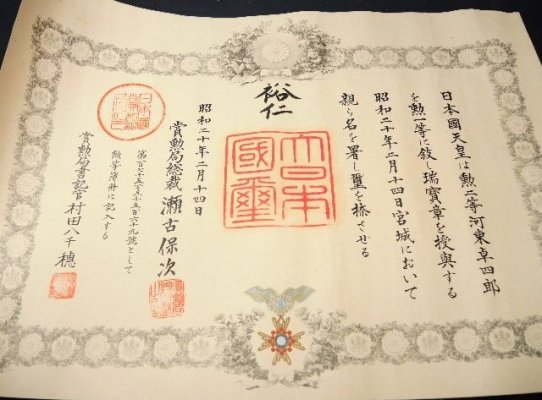 日本國天皇は勲二等河東卓四郎
を勲一等に敍し瑞寶章を授與する
昭和二十年二月十四日宮城において
親ら名を署し璽を捺させる
裕仁
大日本
國璽
昭和二十年二月十四日
賞勲局総裁 瀬古保次
號として
勲等簿冊に記入する
賞勲局書記官 村田八千穂